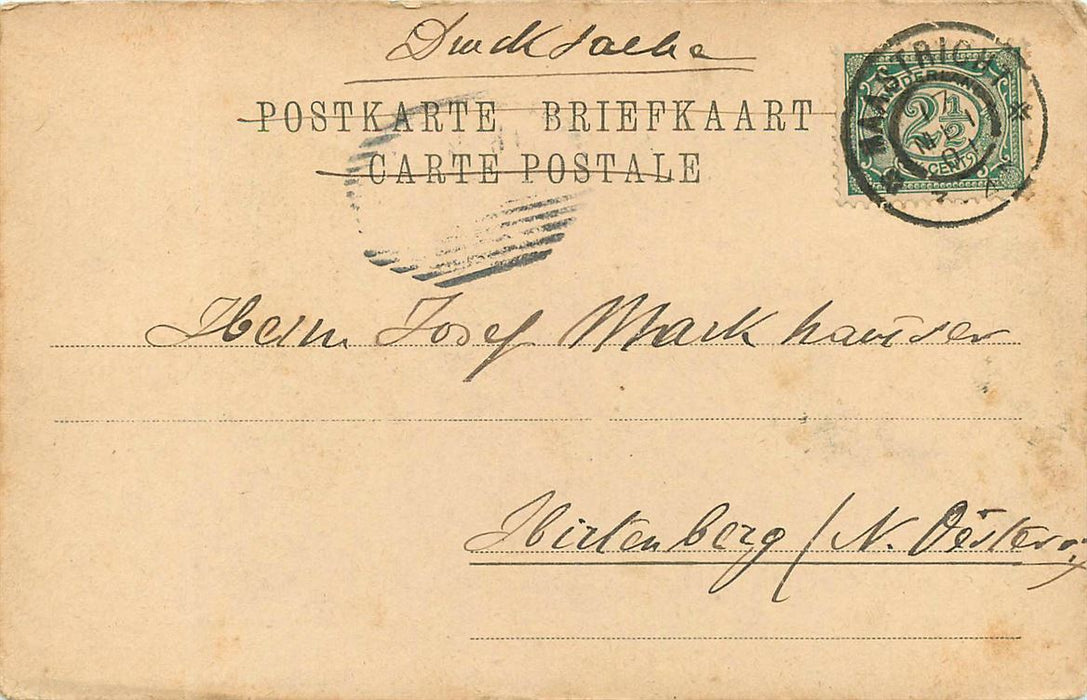 Drucksache
POSTKARTE BRIEFKAART
CARTE POSTALE
MAASTRICHT
NEDERLAND
2½
CENT
Herrn Josef Markhauser
Hirtenberg / N. Öster